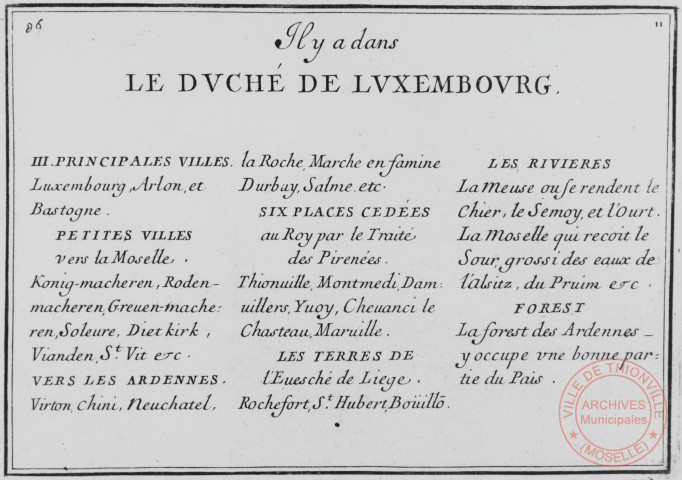 86
11
Il y a dans
LE DVCHÉ DE LVXEMBOVRG.
III. PRINCIPALES VILLES.
Luxembourg, Arlon, et
Bastogne.
PETITES VILLES
vers la Moselle.
Konig-macheren, Roden-
macheren, Greuen-mache-
ren, Soleure, Diet kirk,
Vianden, St. Vit etc.
VERS LES ARDENNES.
Virton, Chini, Neuchatel,
la Roche, Marche en famine
Durbuy, Salme. etc.
SIX PLACES CEDÉES
au Roy par le Traité
des Pirenées.
Thionuille, Montmedi, Dam:
uillers, Yuoy, Cheuanci le
Chasteau, Maruille.
LES TERRES DE
l'Euesché de Liege.
Rochefort, St. Hubert, Boüillõ.
LES RIVIERES
La Meuse ou se rendent le
Chier, le Semoy, et l'Ourt.
La Moselle qui recoit le
Sour, grossi des eaux de
l'alsitz, du Pruim etc.
FOREST
La forest des Ardennes
y occupe vne bonne par:
tie du Pais.
VILLE DE THIONVILLE
ARCHIVES
Municipales
(MOSELLE)